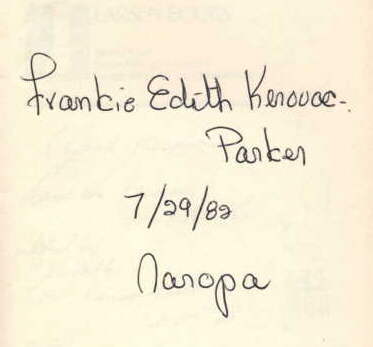 Frankie Edith Kerouac-
Parker
7/29/82
Naropa